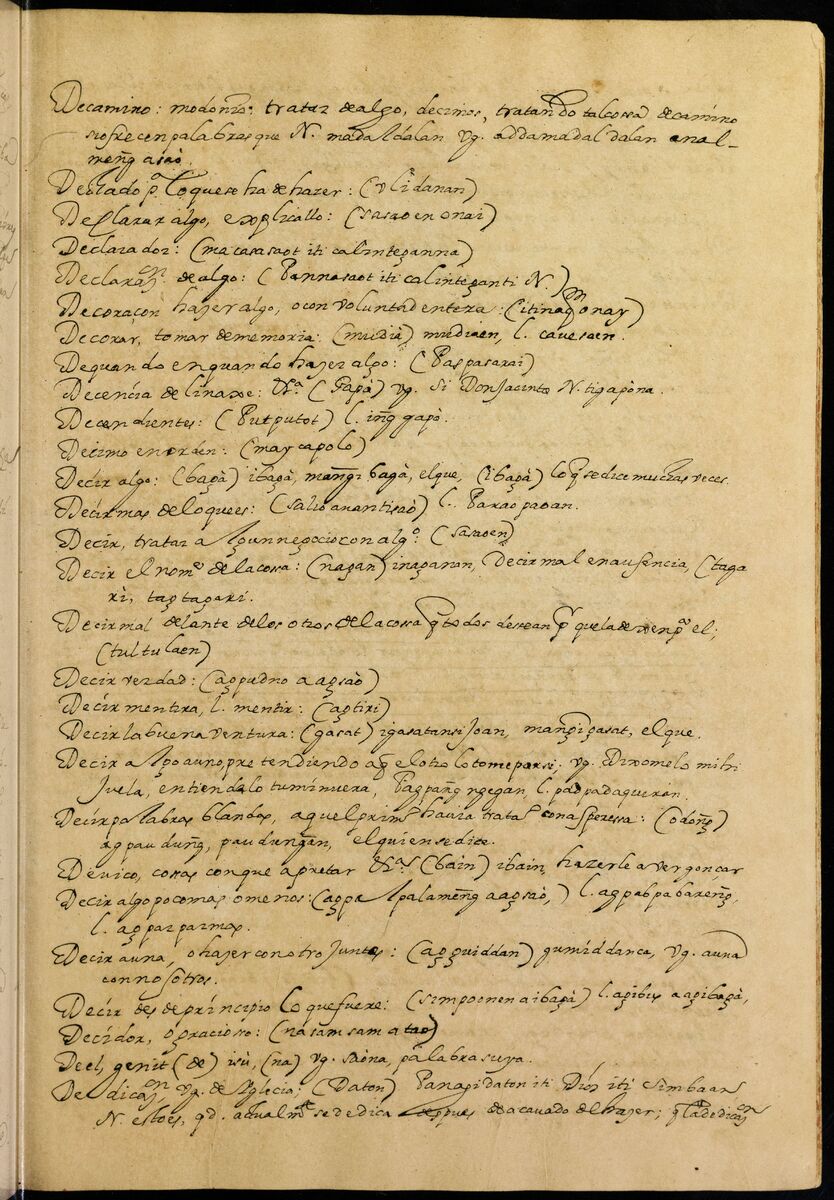 De camino: modo n.ro: tratar de algo, decimos, tratando tal cossa de camino
se ofrecen palabras que N. madaldalan vg. addamadaldalan anal-
meng̃ a saò.
De claro lo que se ha de hazer: (ulidanan)
Declarar algo, explicallo: (sasaoen onai)
Declarador: (macasasaot iti calinteg̃anna)
Declaraçn de algo: (Pannasaot iti calinteg̃anti N.)
De coraçon hazer algo, o con voluntad entera: (itinaqm onay)
Decorar, tomar de memoria: (mudià) mudiaen, l. cavesaen.
De quando en quando hazer algo: (Paspasarai)
Decencia de linaxe: (Papà) vg. si Don Jacinto N. tigapòna.
Decendientes: (Putputot) l. ing̃gapò.
Decimo en orden: (maycapolo)
Decir algo: (bag̃à) ibag̃à, mang̃ibagà, el que, (ibag̃à) lo q se dice muchas veces.
Decir mas de lo que es: (salioanantisaò) l. Paraopaoan.
Decir, tratar algun negocio con algo: (sasaoen)
Decir el nome de la cossa: (nag̃an) inag̃anan, Decir mal en ausencia, (taga
ri, tag̃tag̃ari.
Decir mal delante de los otros de la cossa q todos desean pr que la dexen pa el;
(tultulaen)
Decir verdad: (ag̃pudno a ag̃saò)
Decir mentira, l. mentir: (ag̃tiri)
Decir la buena ventura: (gasat) igasatansi Joan, mang̃igasat, el que.
Decir algo a uno pretendiendo aq el otro lo tome para si, vg. Dixomelo mi hi
Juela, entiendalo tu mi nuera, Pagpang̃ ngegan, l. padpadaqueran.
Decir palabras blandas, aquel primo havia trata con asperessa: (odong̃)
ag pau dung̃, paudung̃an, el quien se dice.
De vico, cosas con que apretar (bain) ibain, hazerle avergonçar
Decir algo poco mas o menos: (ag̃palpalameng̃ a ag̃saò,) l. agpabpabareng̃,
l. ag̃parparmas.
Decir a una, o hazer con otro juntos: (ag̃g̃uiddan) gumiddanca, vg. a una
con nosotros.
Decir desde principio lo que fuere: (simpoonen a ibag̃à) l. ag̃ibus a ag̃ibag̃à,
Decidor, o gracioso: (nasamsam a tao)
De el, genit (de) isù, (na) vg. saòna, palabra suya.
Dedicaçn, vg. de Yglecia: (Daton) Panagidaton iti Dios iti simbaan
N. esto es, qd. actualmte se dedica despues de acavado de hazer; q la dedicaçn